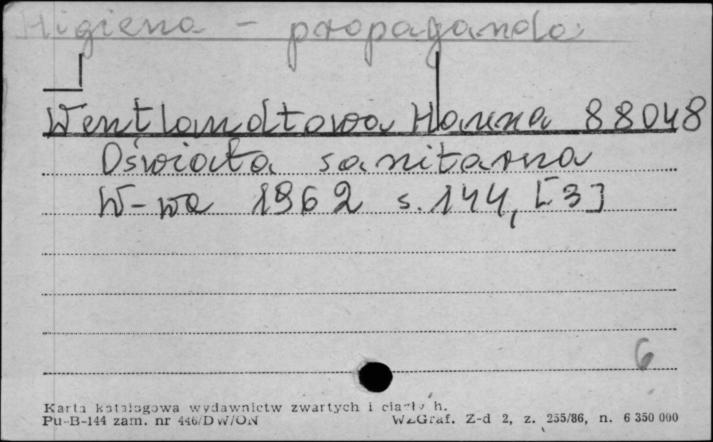 Higiena - propaganda
Wentlandtowa Hanna 88048
Oświata sanitarna
W-wa 1962 s. 144, [3]
6
Karta katalogowa wydawnictw zwartych i ciągłych.
Pu-B-144 zam. nr 446/DW/ON WZGraf. Z-d 2, z. 255/86, n. 6 350 000